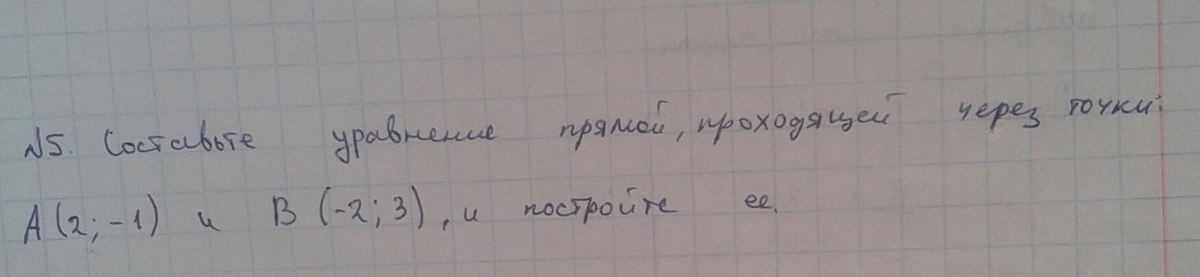 №5. Составьте уравнение прямой, проходящей через точки:
A(2; -1) и B (-2; 3), и постройте ее.